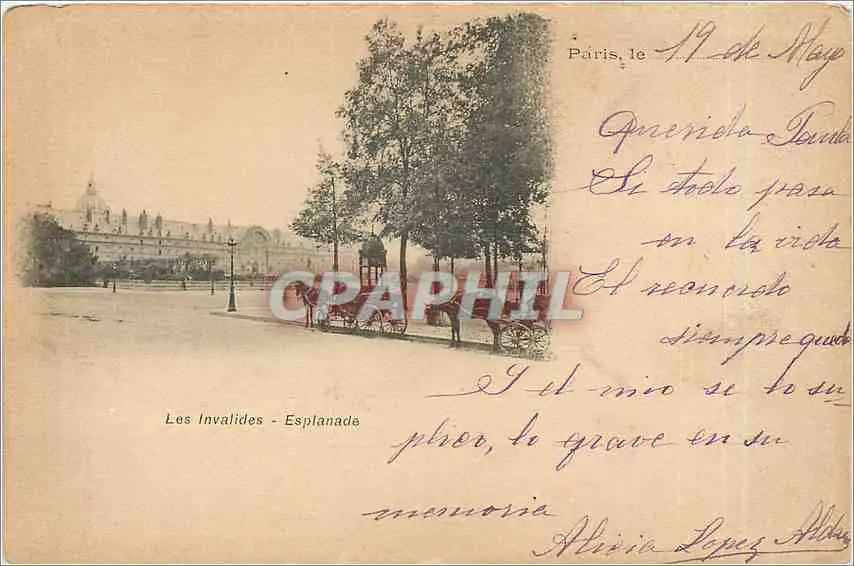 Paris, le 19 de Mayo
Querida
Si todo pasa
en la vida
El recuerdo
siempre queda
I el mio se lo su-
plico, lo grave en su
memoria
Alicia Lopez
CPAPHIL
Les Invalides - Esplanade